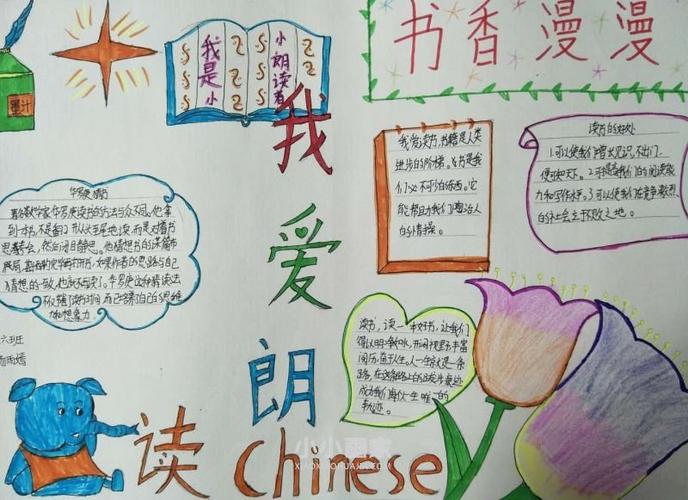 墨汁
我是小
小朗读者
书香漫漫
我爱朗读
我爱读书,书籍是人类
进步的阶梯。书是我
们必不可少的东西。它
能帮助我们陶冶人
的情操。
读书的好处
1.可以使我们增长见识,不出门
便可知天下。2.可提高我们的阅读能
力和写作水平。3.可以使我们在竞争激烈
的社会立于不败之地。
华罗庚猜书
数学家华罗庚读书的方法与众不同。他拿
到一本书,不是翻开从头至尾地读,而是对着书
思考一会,然后闭目静思。他猜想书的谋篇布
局,斟酌完毕再打开书,如果作者的思路与自己
猜想的一致,他就不再读了。华罗庚这种猜读法
不仅节省了读书时间,而且培养了自己的思维
力和想象力。
读书,读一本好书,让我们
得以明净如水,开阔视野丰富
阅历,益于人生。人一生就是一条
路,在这条路上的
成为我们每人一生唯一的
轨迹。
六班
chinese
小小画家
XIAOXIAOHUAJIA.COM